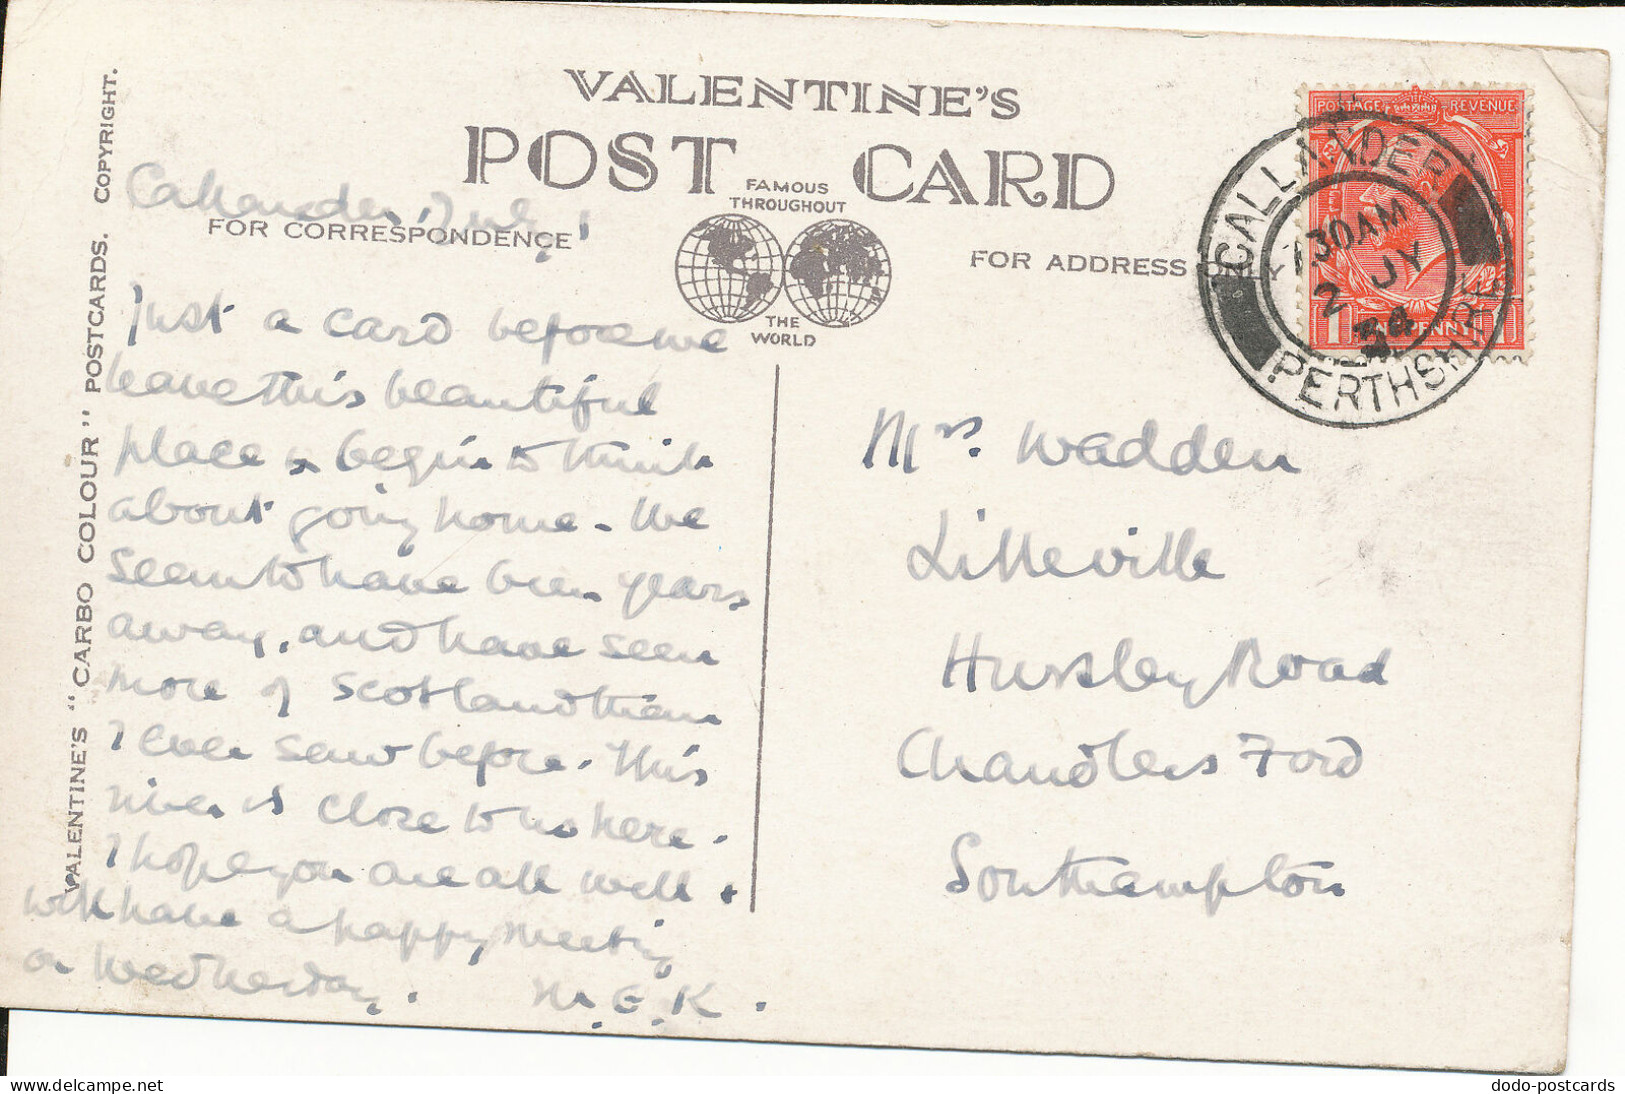 VALENTINE'S
POST CARD
FAMOUS
THROUGHOUT
THE
WORLD
FOR CORRESPONDENCE
FOR ADDRESS
VALENTINE'S "CARBO COLOUR" POSTCARDS. COPYRIGHT.
POSTAGE REVENUE
1 PENNY 1
CALLANDER
1130AM
2 JY
34
PERTHSHIRE
Callander, July 1
Just a card before we
leave this beautiful
place & begin to think
about going home. We
seem to have been years
away, and have seen
more of Scotland than
I ever saw before. This
river is close to us here.
I hope you are all well &
will have a happy meeting
on Wednesday. M. E. K.
Mrs. Wadden
Lilleville
Hursley Road
Chandlers Ford
Southampton
dodo-postcards